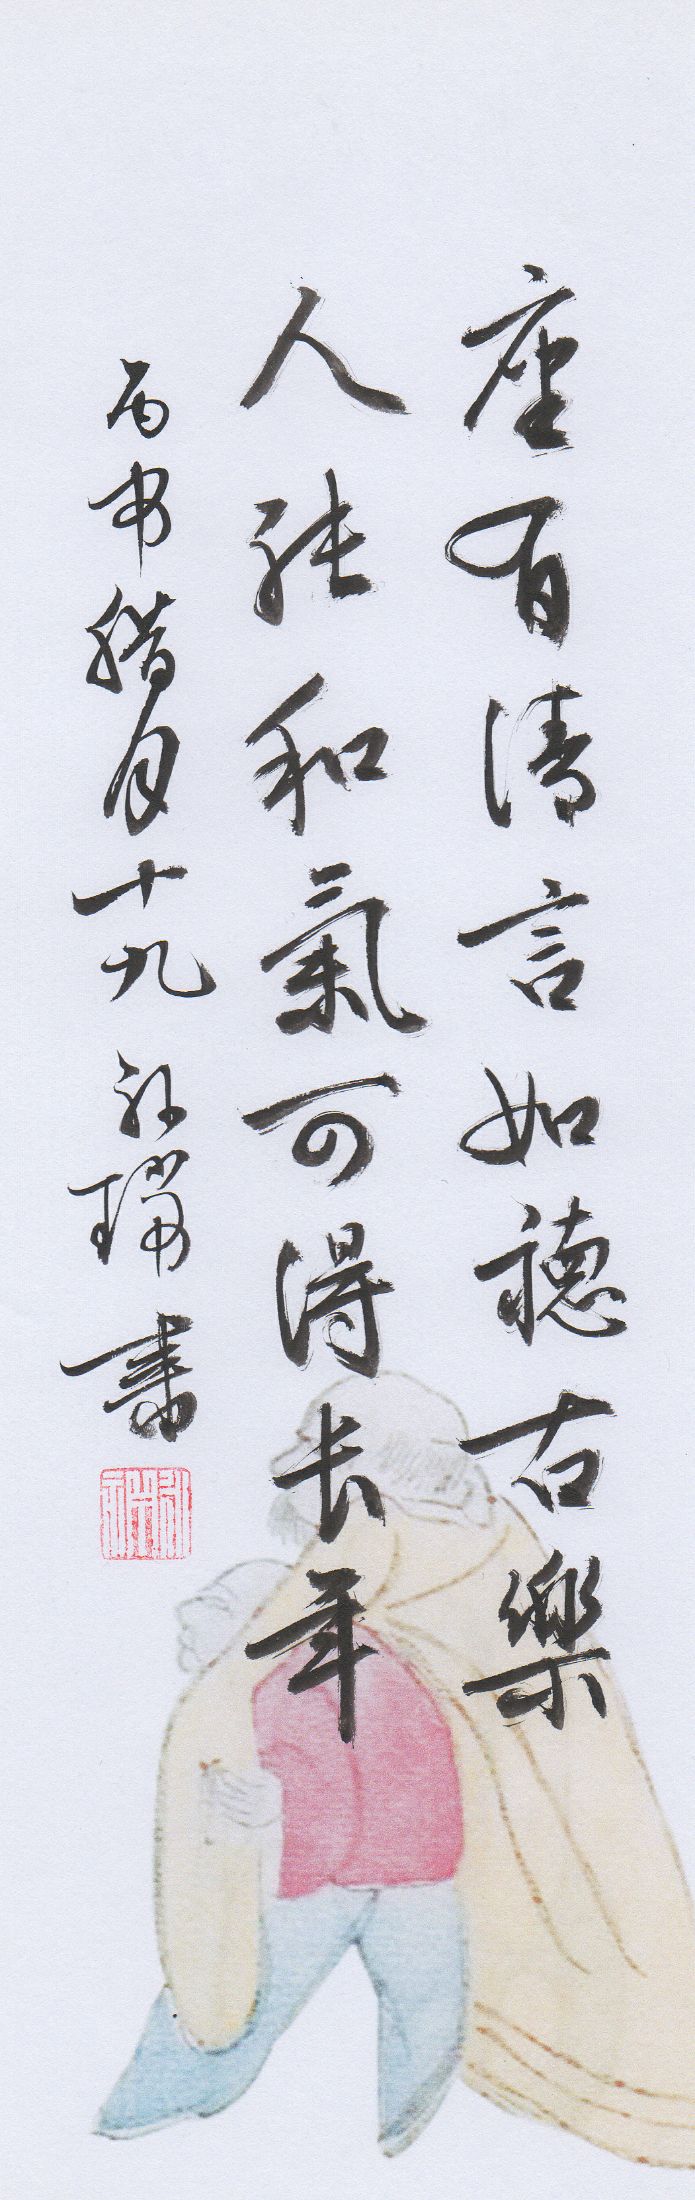 座有清言如聽古樂
人能和氣可得长年
丙申腊月十九 瑞書